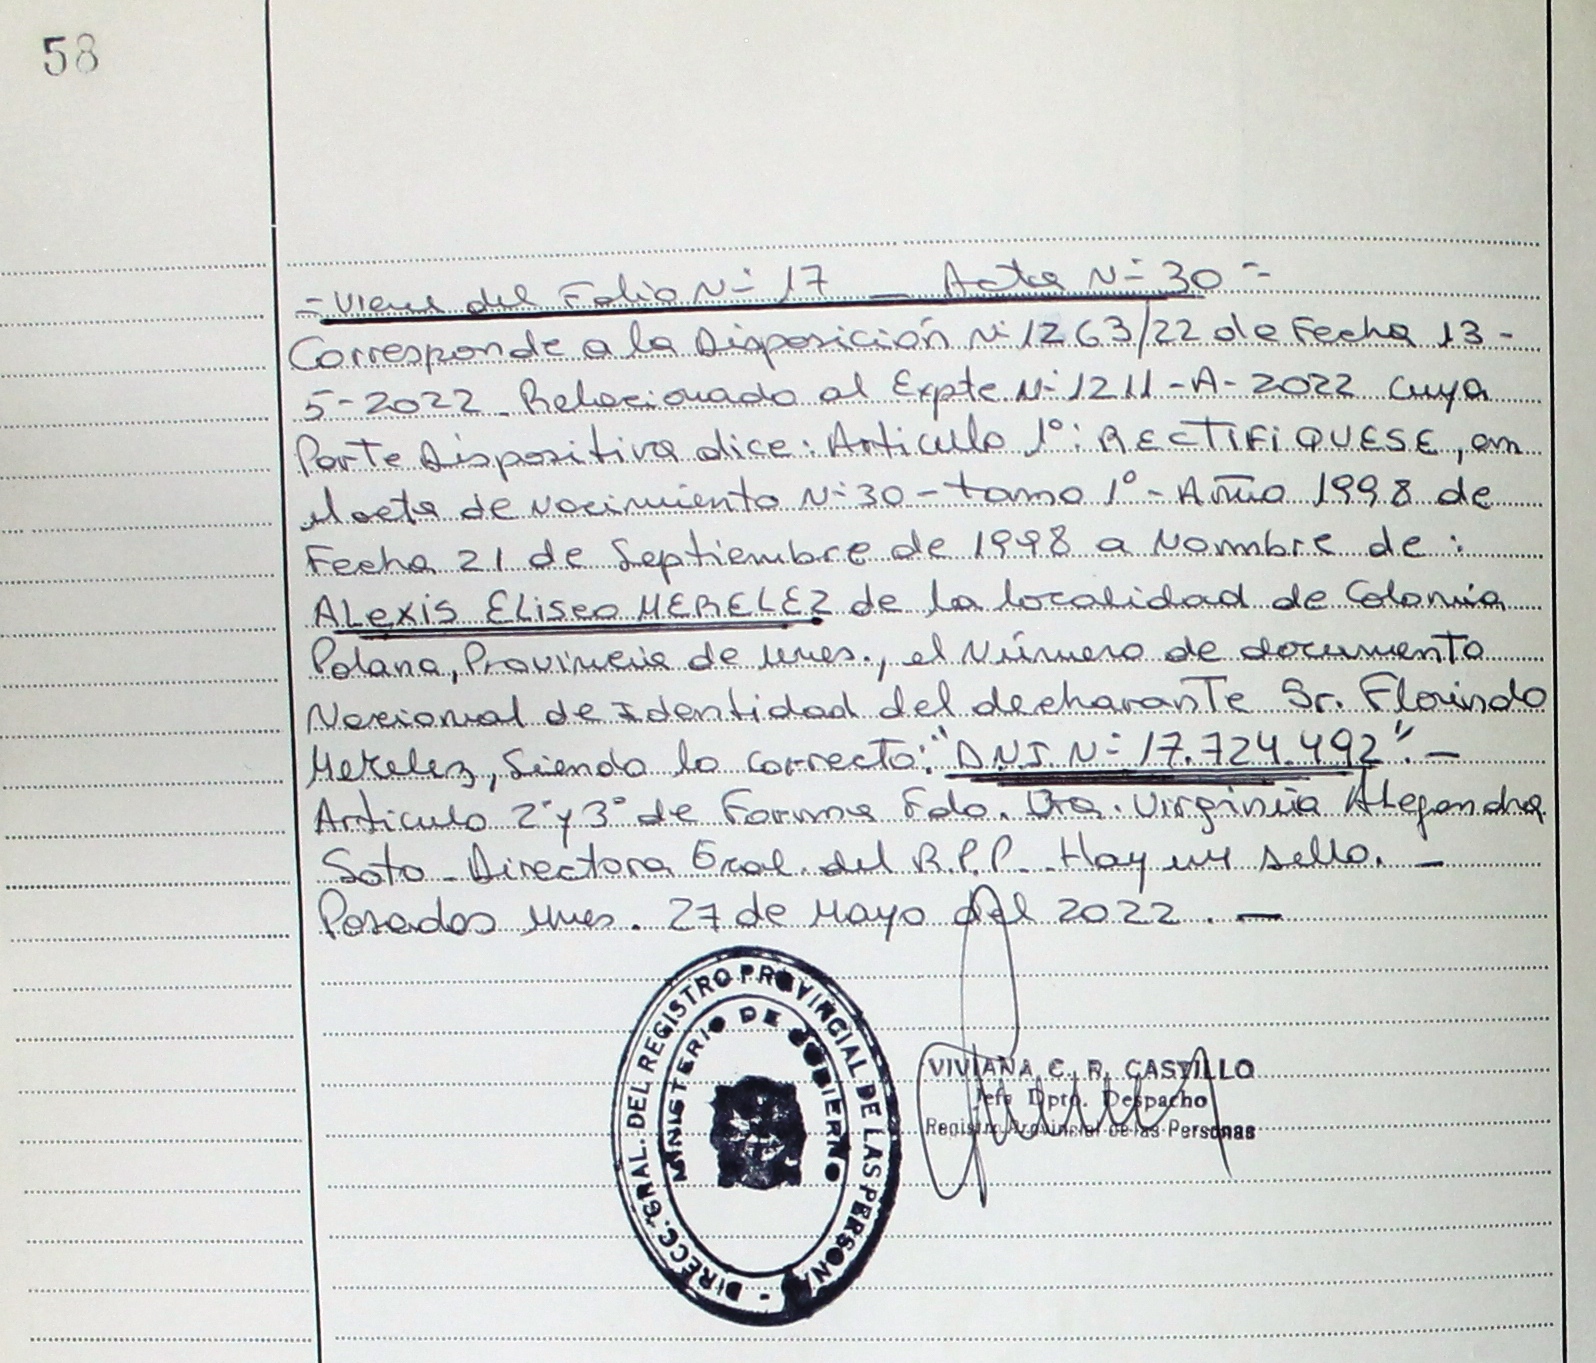 58
- Viene del Folio N° 17 _ Acta N° 30 -
Corresponde a la Disposición N° 1263/22 de Fecha 13-
5-2022. Relacionado al Expte N° 1211-A-2022 cuya
Parte Dispositiva dice: Articulo 1°: RECTIFIQUESE, en
el acta de Nacimiento N° 30 - tomo 1° - Año 1998 de
Fecha 21 de Septiembre de 1998 a Nombre de :
ALexis ELiseo MERELEZ de la localidad de Colonia
Polana, Provincia de Mnes., el Número de documento
Nacional de Identidad del declarante Sr. Florindo
Merelez, Siendo lo correcto: "D.N.I. N° 17.724.492". -
Articulo 2° y 3° de Forma Fdo. Dra. Virginia Alejandra
Soto - Directora Gral. del R.P.P. Hay un sello. -
Posadas Mnes. 27 de Mayo del 2022. -
DIRECC. GRAL. DEL REGISTRO PROVINCIAL DE LAS PERSONAS -
MINISTERIO DE GOBIERNO
VIVIANA C. R. CASTILLO
Jefe Dpto. Despacho
Registro Provincial de las Personas